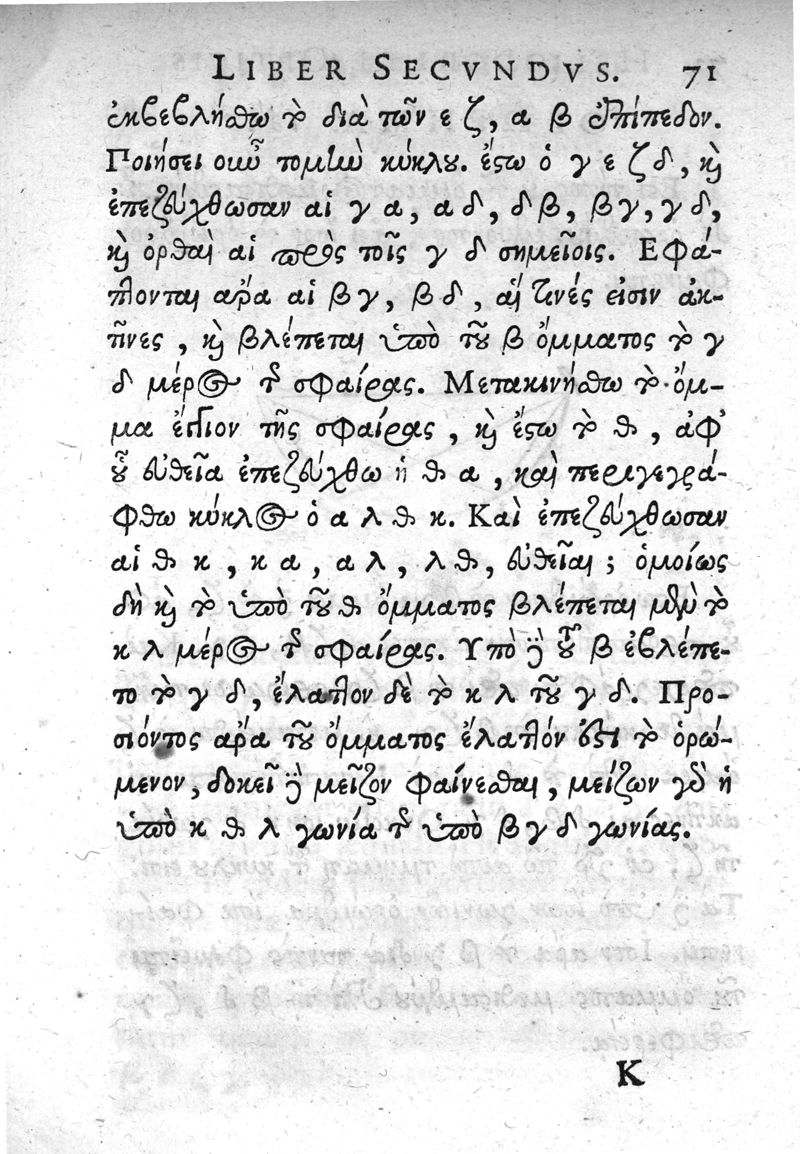 LIBER SECVNDVS. 71
ἐκβεβλήσθω τὸ διὰ τῶν ε ζ, α β ἐπίπεδον.
Ποιήσει οὖν τομὴν κύκλου. ἔστω ὁ γ ε ζ δ, καὶ
ἐπεζεύχθωσαν αἱ γ α, α δ, δ β, β γ, γ δ,
καὶ ὀρθαὶ αἱ πρὸς τοῖς γ δ σημείοις. Εφά-
πτονται ἄρα αἱ β γ, β δ, αἵ τινές εἰσιν ἀκ-
τῖνες, καὶ βλέπεται ὑπὸ τοῦ β ὄμματος τὸ γ
δ μέρος τῆς σφαίρας. Μετακινήσθω τὸ ὄμ-
μα ἔγγιον τῆς σφαίρας, καὶ ἔστω τὸ θ, ἀφ’
οὗ εὐθεῖα ἐπεζεύχθω ἡ θ α, καὶ περιγεγρά-
φθω κύκλος ὁ α λ θ κ. Καὶ ἐπεζεύχθωσαν
αἱ θ κ, κ α, α λ, λ θ, εὐθεῖαι; ὁμοίως
δὴ καὶ τὸ ὑπὸ τοῦ θ ὄμματος βλέπεται μὲν τὸ
κ λ μέρος τῆς σφαίρας. Υπὸ δὲ τοῦ β ἐβλέπε-
το τὸ γ δ, ἔλαττον δὲ τὸ κ λ τοῦ γ δ. Προ-
σιόντος ἄρα τοῦ ὄμματος ἔλαττόν ἐστι τὸ ὁρώ-
μενον, δοκεῖ δὲ μεῖζον φαίνεσθαι, μείζων γὰρ ἡ
ὑπὸ κ θ λ γωνία τῆς ὑπὸ β γ δ γωνίας.
K